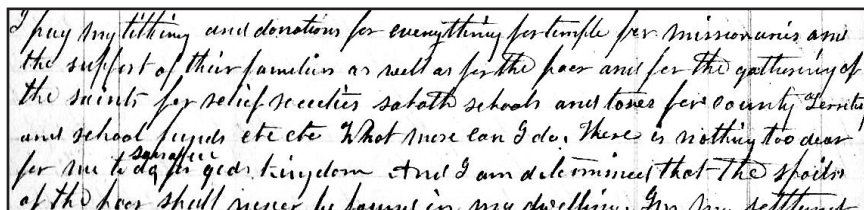 I pay my tithing and donations for everything for temple for missionaries and
the support of their families as well as for the poor and for the gathering of
the saints for relief societies sabath schools and taxes for county Territ
and school funds etc etc What more can I do. There is nothing too dear
for me to sacrifice for gods kingdom And I am determined that the spoils
of the poor shall never be found in my dwelling. In my settlement